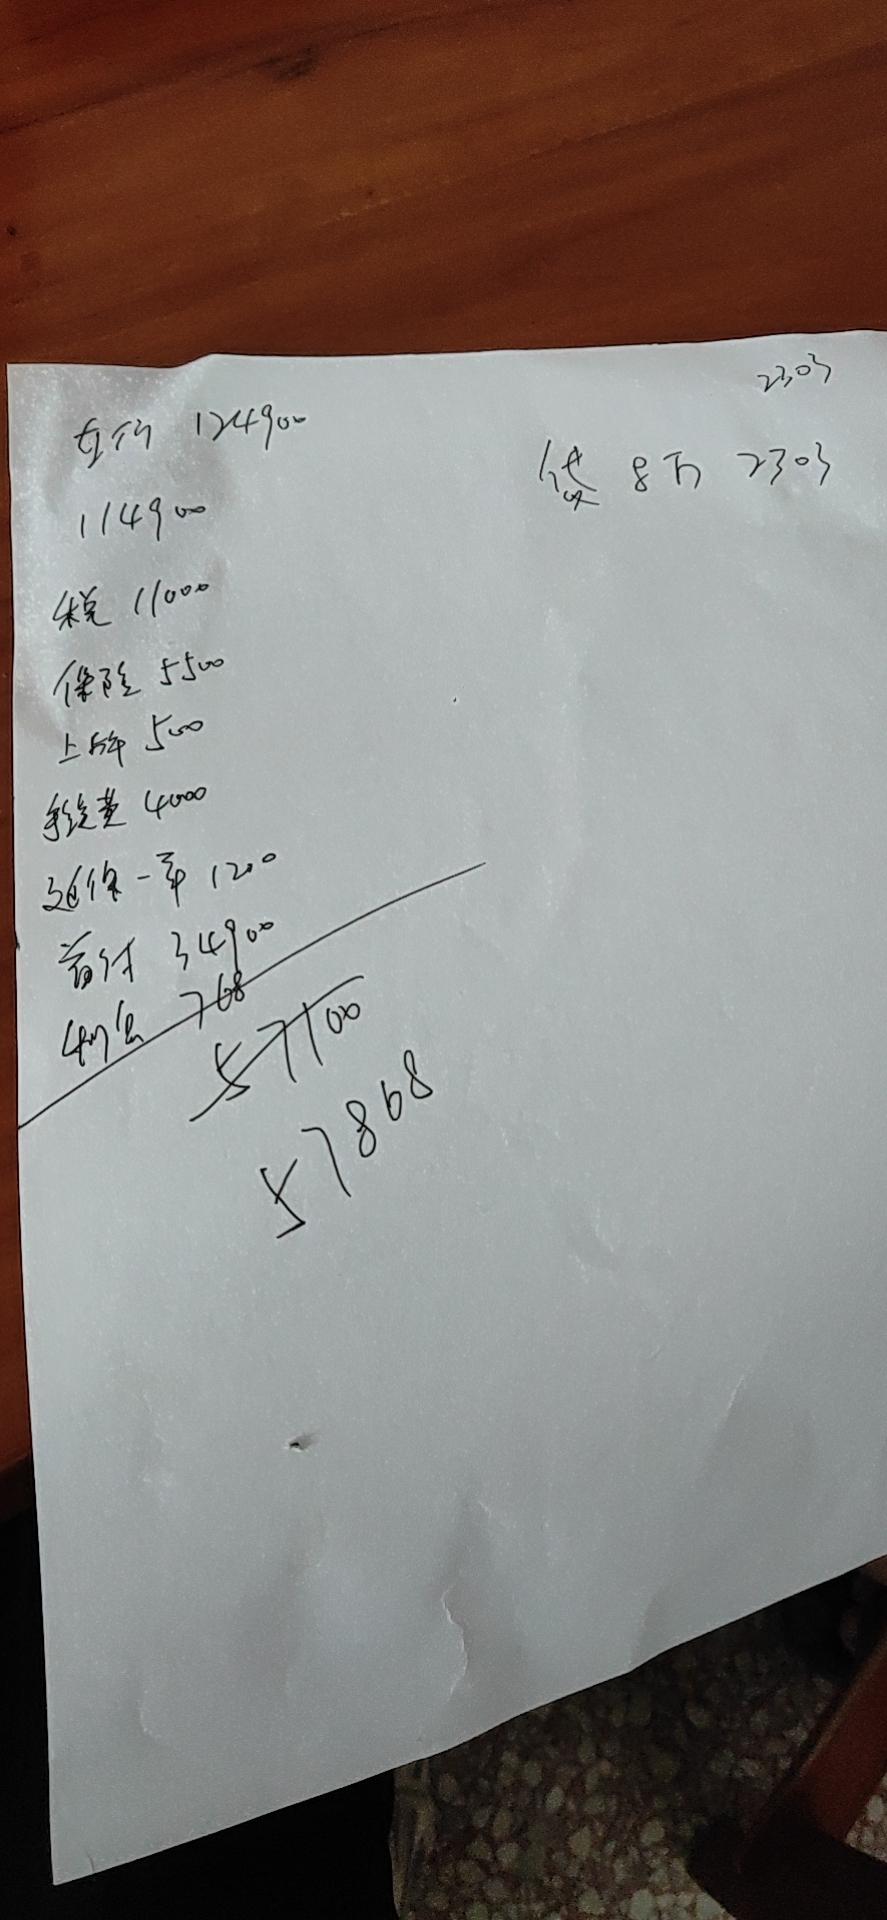 2303
车价 124900
贷 8万 2303
114900
税 11000
保险 5500
上牌 500
手续费 4000
延保一年 1200
首付 34900
利息 768
57100
57868